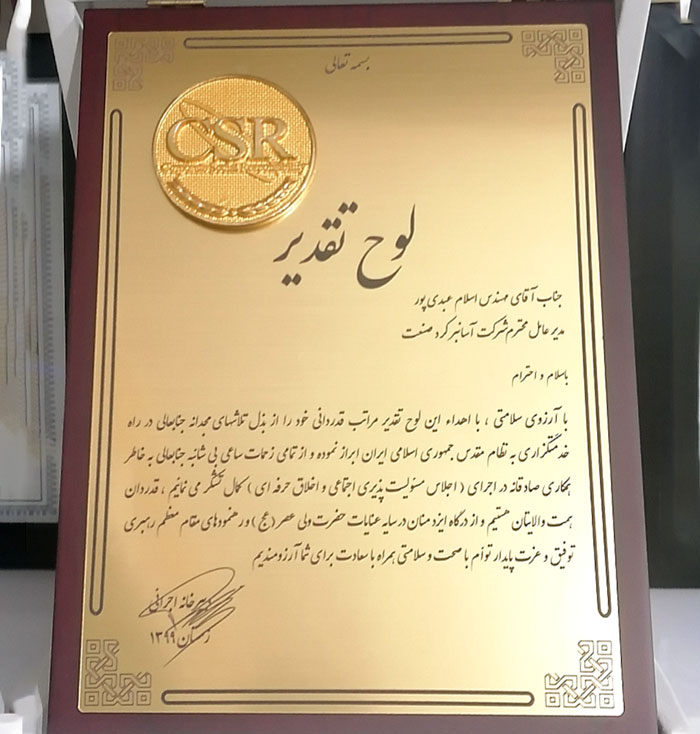 بسمه تعالی
CSR
لوح تقدیر
جناب آقای مهندس اسلام عبدی پور
مدیر عامل محترم شرکت آسانبر کرد صنعت
با سلام و احترام
با آرزوی سلامتی ، با اهداء این لوح تقدیر مراتب قدردانی خود را از بذل تلاشهای مجدانه جنابعالی در راه
خدمتگزاری به نظام مقدس جمهوری اسلامی ایران ابراز نموده و از تمامی زحمات ساعی بی شائبه جنابعالی به خاطر
همکاری صادقانه در اجرای ( اجلاس مسئولیت پذیری اجتماعی و اخلاق حرفه ای ) کمال تشکر می نمائیم ، قدردان
همت والایتان هستیم و از درگاه ایزد منان در سایه عنایات حضرت ولی عصر (عج) و رهنمودهای مقام معظم رهبری
توفیق و عزت پایدار توأم با صحت و سلامتی همراه با سعادت برای شما آرزومندیم
دبیرخانه اجرائی
زمستان ۱۳۹۹